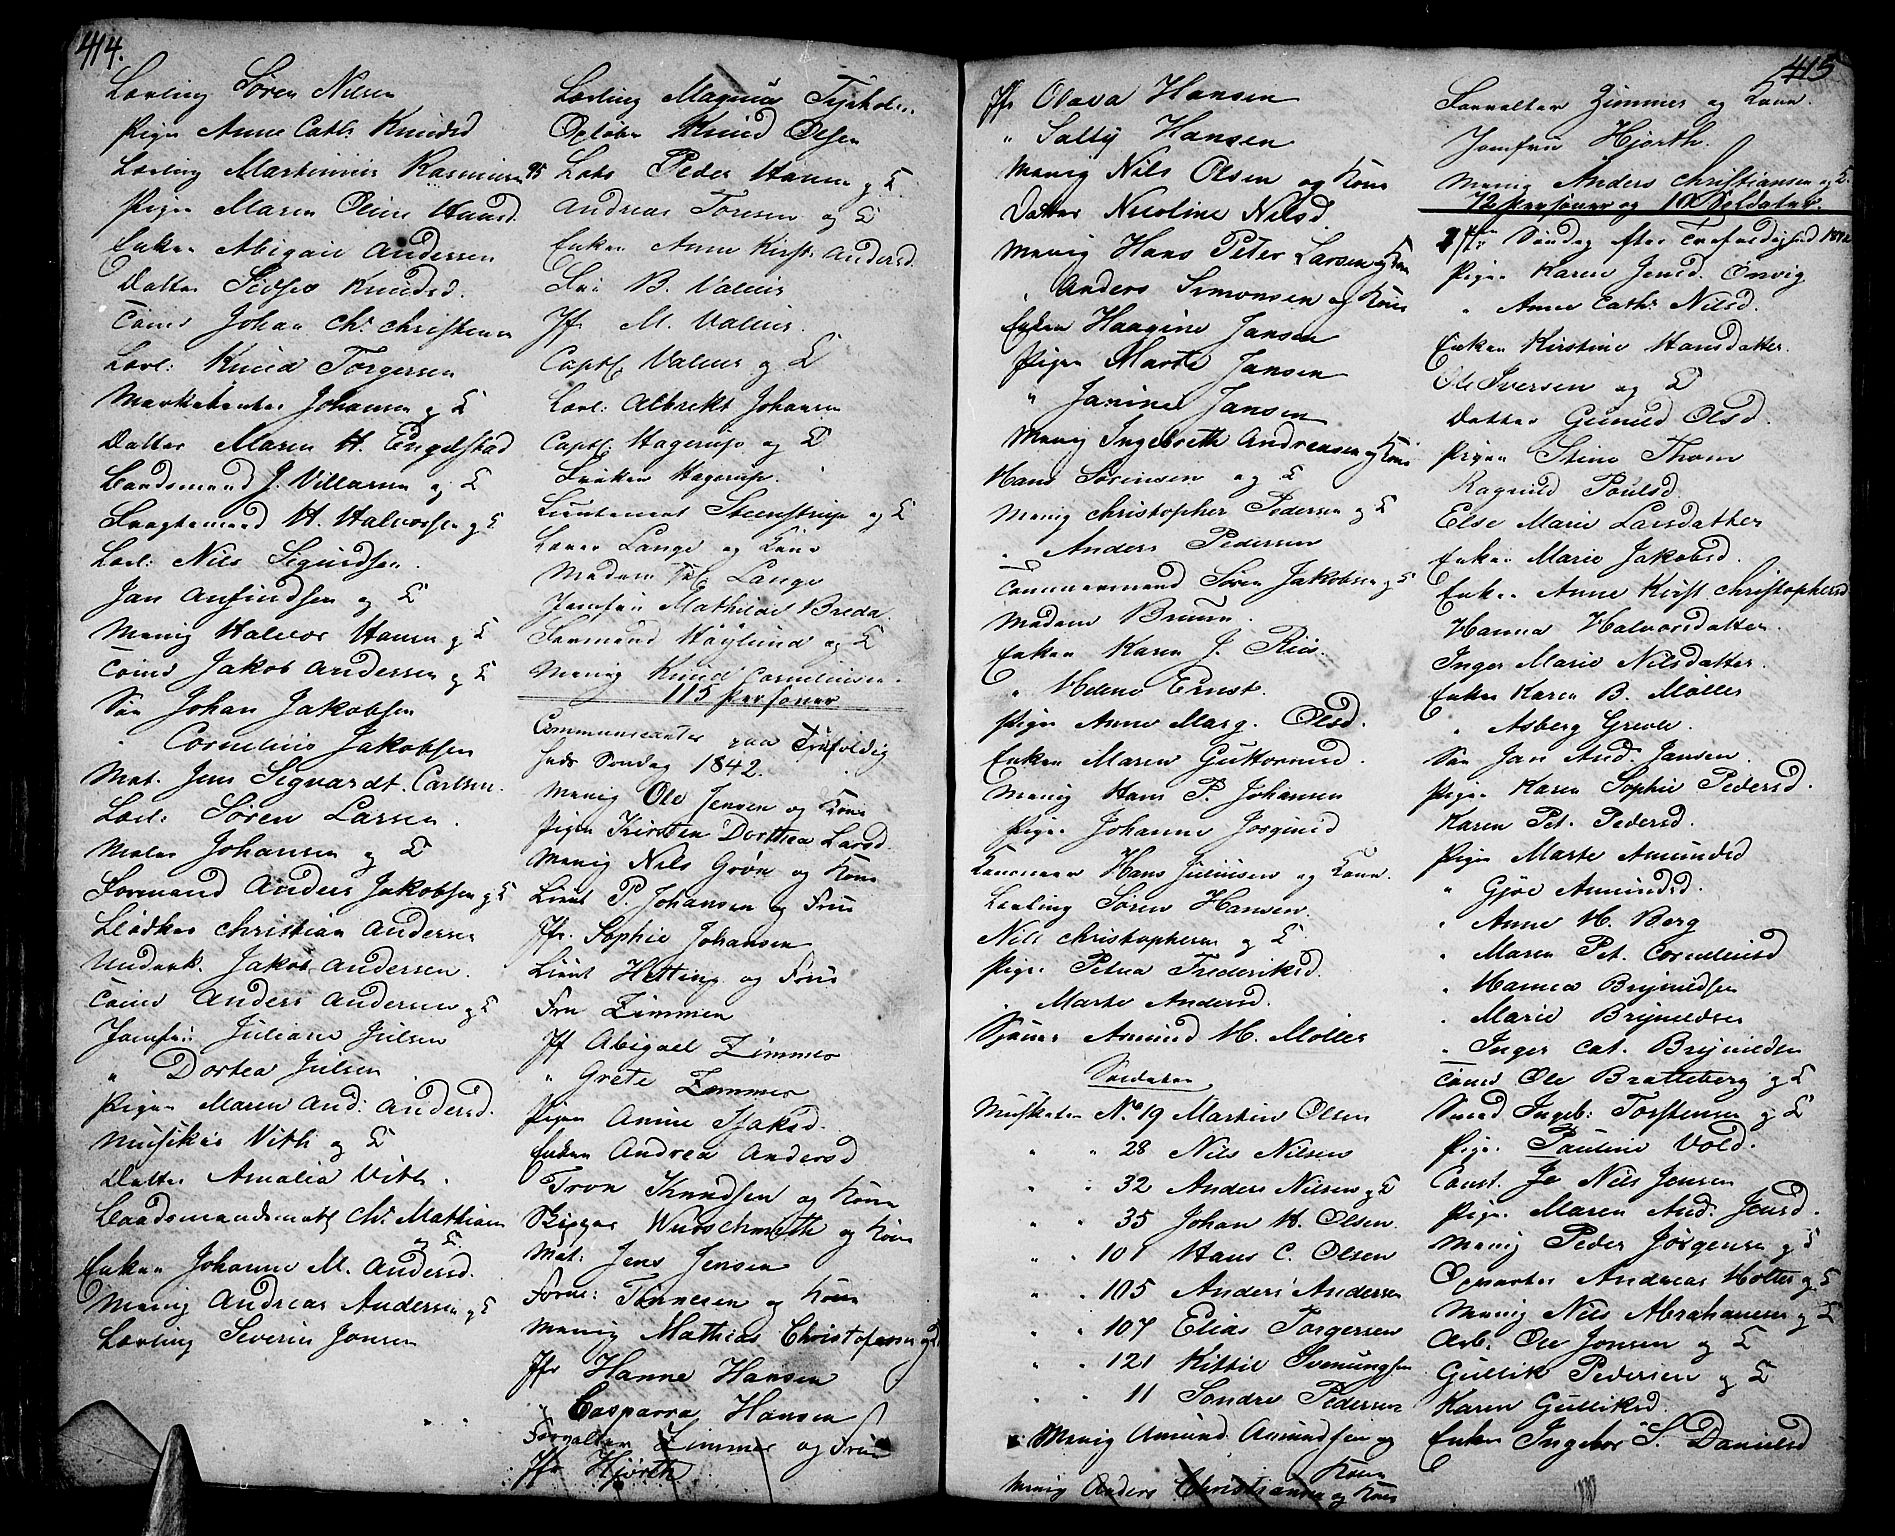 414.
Lærling Søren Nilsen
Pigen Anne Cath. Knudsd
Lærling Martinius Rasmusen
Pigen Maren Oline Hansd.
Enken Abigael Andersen
Datter Knudsd.
Tømd Johan Chr. Christensen
Lærl: Knud Torgersen
Marketenter Johansen og K
Datter Maren H. Engelstad
Baadsmand J. Villarsen og K
Fragtemand H. Halvorsen og K
Lærl: Nils Sigurdsen.
Jan Anfindsen og K
Menig Halvor Hansen og K
Tømd Jakob Andersen og K
Søn Johan Jakobsen
" Cornelius Jakobsen
Mat. Jens Sigvardt Carlsen.
Lærl: Søren Larsen.
Maler Johansen og K
Formand Anders Jakobsen og K
Bødker Christian Andersen
Underk. Jakob Andersen.
Tømd Anders Andersen og K
Jomfru Juliane Julsen
" Dortea Julsen
Pigen Maren And: Andersd.
Musikus Vith og K
Datter Amalia Vith.
Baadsmandsmath Chr. Mathiasen
og K.
Enken Johanne M. Andersd.
Menig Andreas Andersen og K
Lærling Severin Jonsen
Lærling Magnus
Opløber Knud Olsen
95 Lods Peder Hansen og K
Andreas Toresen og K
Enken Anne Kirst. Andersd.
Fru B. Valeur
Jfr M. Valeur.
Captl. Valeur og K
Lærl: Albrekt Johansen
Captl. Hagerup og K
Frøken Hagerup.
Lieutenant Steenstrup og K
Lærer Lange og Kone
Madam Lange
Jomfru Mathilde Breda
Formand Høglund og K
Menig Knud Corneliusen.
115 Personer
Communicanter paa Trefoldig
heds Søndag 1842.
Menig Ole Jensen og Kone
Pigen Kirsten Dorthea Larsd.
Menig Nils Grøn og Kone
Lieut P. Johansen og Frue
Jfr. Sophie Johansen
Lieut Hetting og Frue
Fru Zimmer
Jf Abigael Zimmer
" Grete Zimmer
Pigen Anne Isaksd.
Enken Andrea Andersd
Tron Knudsen og Kone
Skipper Wurschmidth og Kone
Mat: Jens Jensen
Form: Tønnesen og Kone
Menig Mathias Christofersen og K
Jfr Hanne Hansen
" Casparra Hansen
Forvalter Zimmer og Frue
Jfr Hjorth
415
Jfr Olava Hansen
" Sally Hansen
Menig Nils Olsen og Kone
Datter Nicoline Nilsd.
Menig Hans Peter Larsen og Kone
Anders Simonsen og Kone
Enken Haagine Jansen
Pigen Marte Jansen
" Janine Jansen
Menig Ingebreth Andreasen og Kone
Hans Sørensen og K
Menig Christopher Pedersen og K
" Anders Pedersen
Tømmermand Søren Jakobsen og K
Madam Bruun.
Enken Karen J. Riis.
" Helene Ernst.
Pigen Anne Marg. Olsd.
Enken Maren Guttormsd.
Menig Hans P. Johansen
Pigen Johanne Jørginsd
Hans Juliusen og Kone.
Lærling Søren Hansen.
Nils Christophersen og K
Pigen Petrea Frederiksd.
" Marte Andersd.
Amund H. Møller
Soldater
Musketer No 19 Martin Olsen
" " 28 Nils Nilsen
" " 32 Anders Nilsen og K
" " 35 Johan H. Olsen.
" " 101 Hans C. Olsen
" " 105 Anders Andersen
" " 107 Elias Torgersen
" " 121 Kittil Svenungsen
" " 11 Sondre Pedersen
Menig Amund Amundsen og
Kone
Menig Anders Christiansen og Kone
Forvalter Zimmer og Kone.
Jomfru Hjorth.
Menig Anders Christiansen og K.
72 Personer og 10 Soldater.
1ste Søndag efter Trefoldighed 1842
Pigen Karen Jensd. Ønvig
" Anne Cath: Nilsd.
Enken Kirstine Hansdatter.
Ole Iversen og K
Datter Gunild Olsd.
Pigen Stine Thom
Ragnild Poulsd.
Else Marie Larsdatter
Enken Marie Jakobsd.
Enken Anne Kirst Christophersd
Hanna Halvorsdatter.
Inger Marie Nilsdatter.
Enken Karen B. Møller
" Asberg Greve.
Søn Jan And. Jansen.
Pigen Karen Sophie Pedersd.
Karen Pet. Pedersd.
Pigen Marte Amundsd
" Gjøe Amundsd.
" Anne M. Berg
" Maren Pet. Corneliusd
" Hanna Brynildsen
" Marie Brynildsen
" Inger Cat. Brynildsen
Tømd Ole Bratteberg og K
Smed Ingeb: Torstensen og K
Pigen Pauline Vold.
Const. Je Nils Jensen
Pigen Maren And. Jensd.
Menig Peder Jørgensen og K
Opvarter Andreas Holter og K
Menig Nils Abrahamsen og K
Arb. Ole Jonsen og K
Gullik Pedersen og K
Karen Gulliksd.
Enken Ingebor S. Danielsd